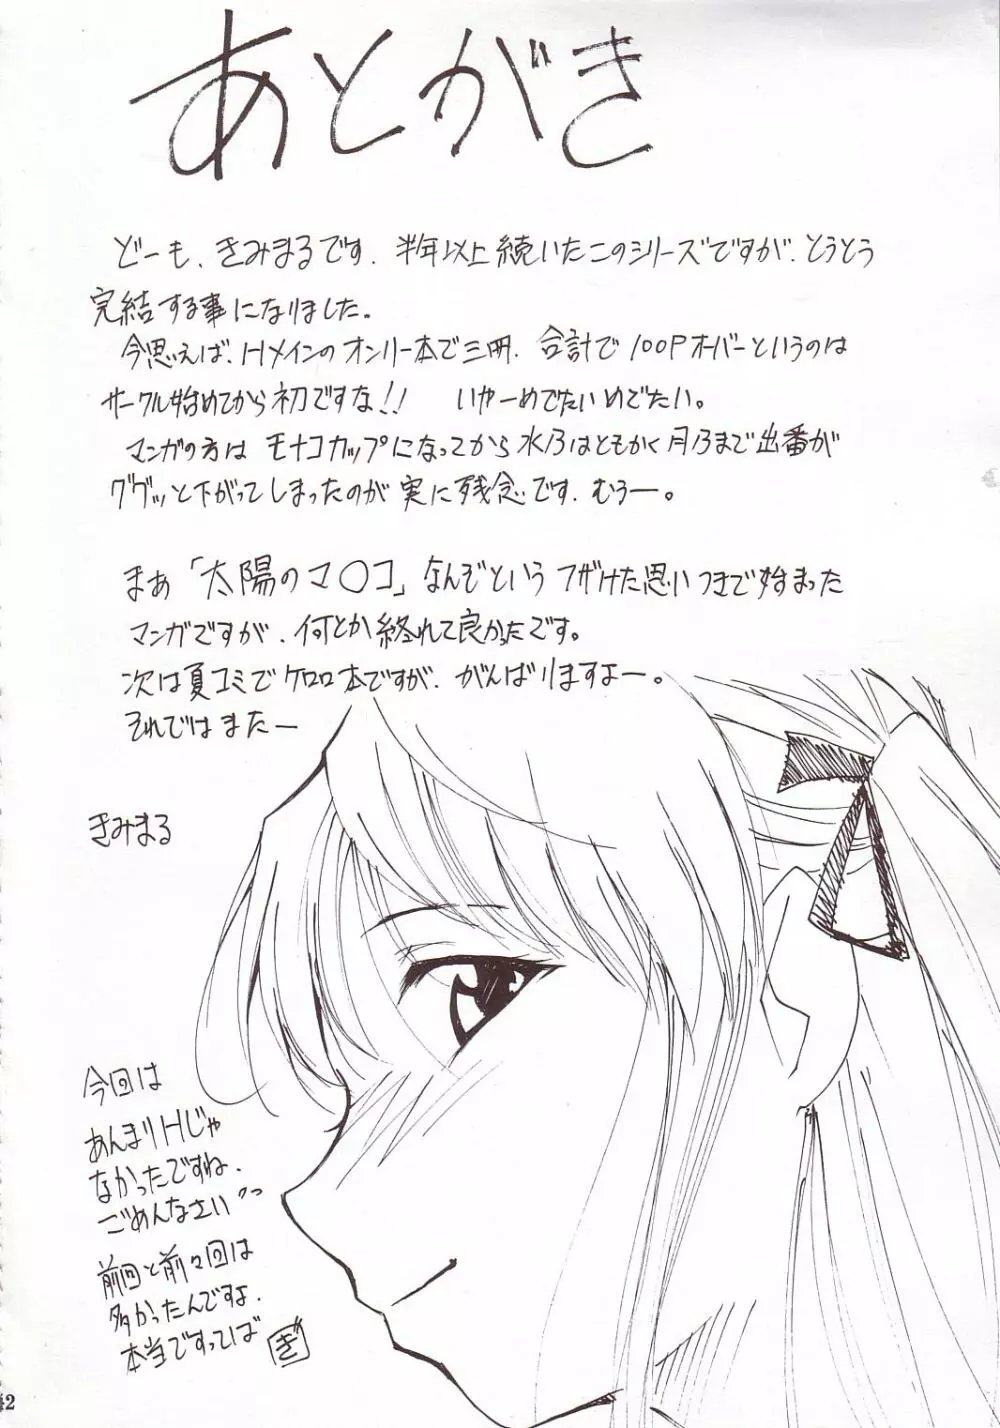 あとがき
どーも、きみまるです。半年以上続いたこのシリーズですが、とうとう
完結する事になりました。
今思えば、Hメインのオンリー本で三冊、合計で100Pオーバーというのは
サークル始めてから初ですな!! いやーめでたいめでたい。
マンガの方はモナコカップになってから水乃はともかく月乃まで出番が
ググッと下がってしまったのが実に残念です。むぅー。
まぁ「太陽のマ○コ」なんぞというフザけた思いつきで始まった
マンガですが、何とか終れて良かったです。
次は夏コミでケロロ本ですが、がんばりますよー。
それではまたー
きみまる
今回は
あんまりHじゃ
なかったですね。
ごめんなさいっ
前回と前々回は
多かったんですよ。
本当ですってば
42